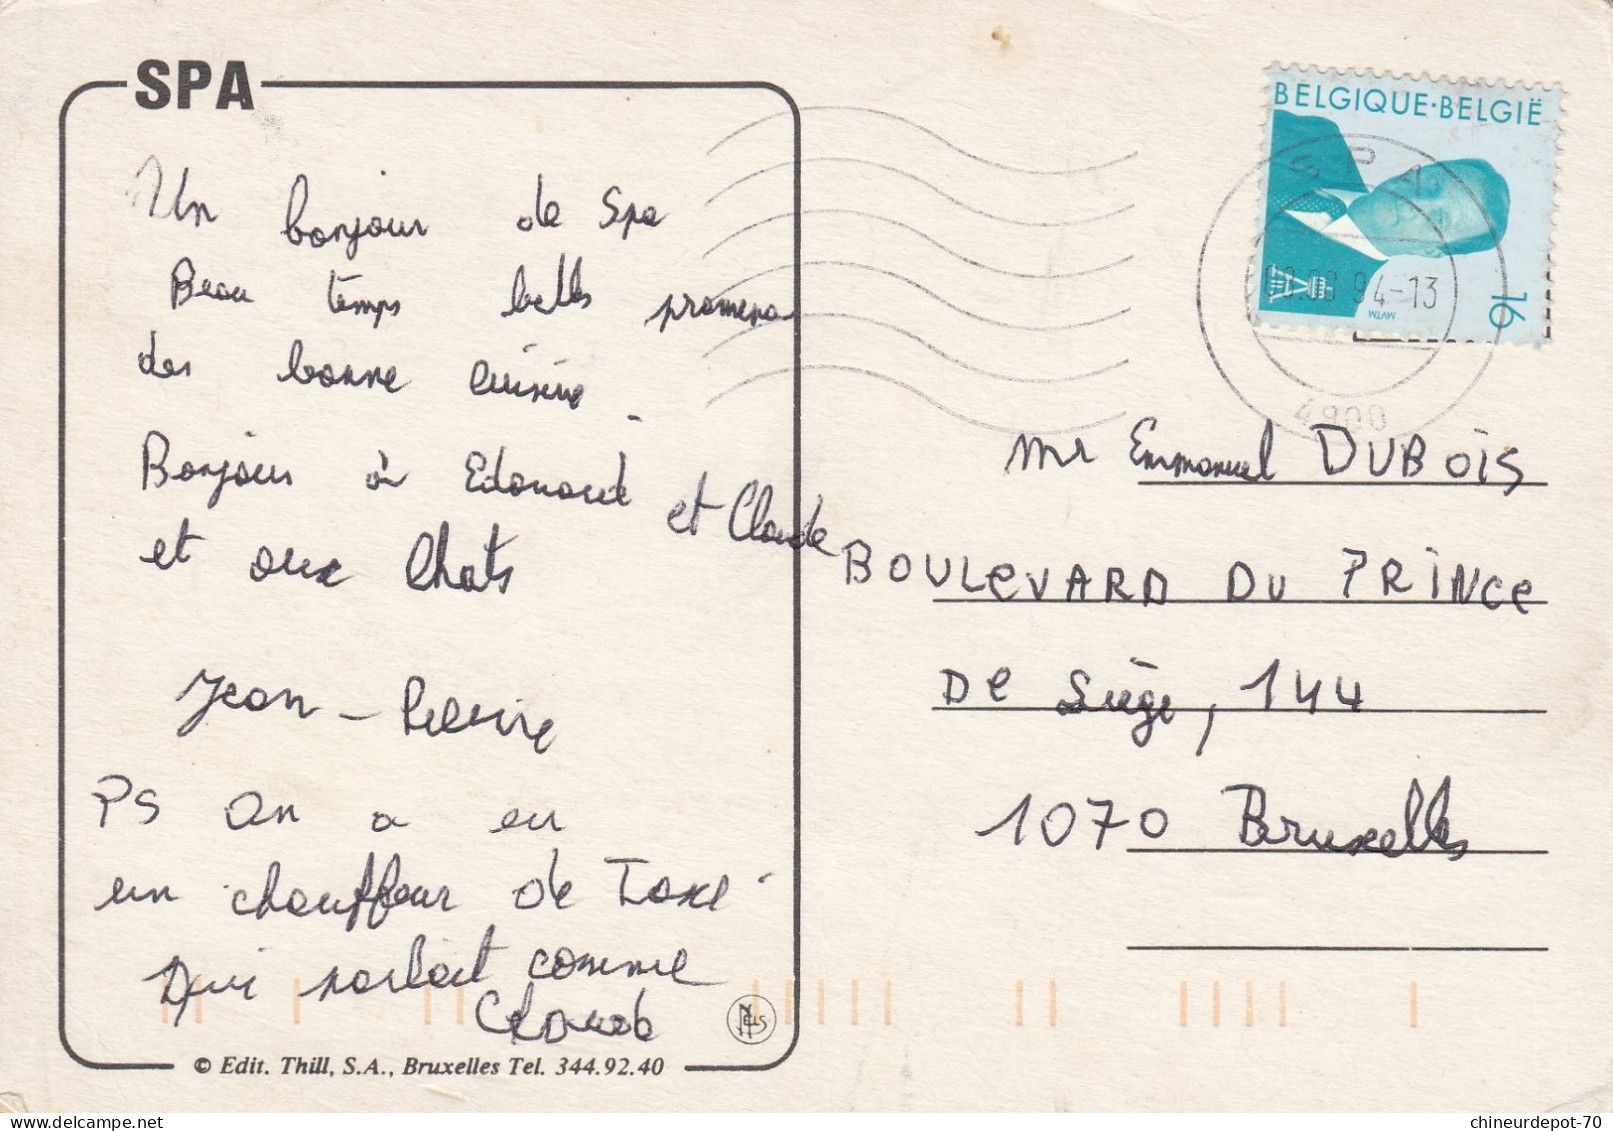 SPA
Un bonjour de Spa
Beau temps belles promena
des bonne cuisine.
Bonjour à Edouard et Claude
et aux chats
Jean-Pierre
PS On a eu
un chauffeur de Taxi
Qui parlait comme
Claude
NELS
© Edit. Thill, S.A., Bruxelles Tel. 344.92.40
BELGIQUE·BELGIË
16
MVTM
SPA
94-13
4900
Mr Emmanuel DUBOIS
BOULEVARD DU PRINCE
DE Siège, 144
1070 Bruxelles
chineurdepot-70